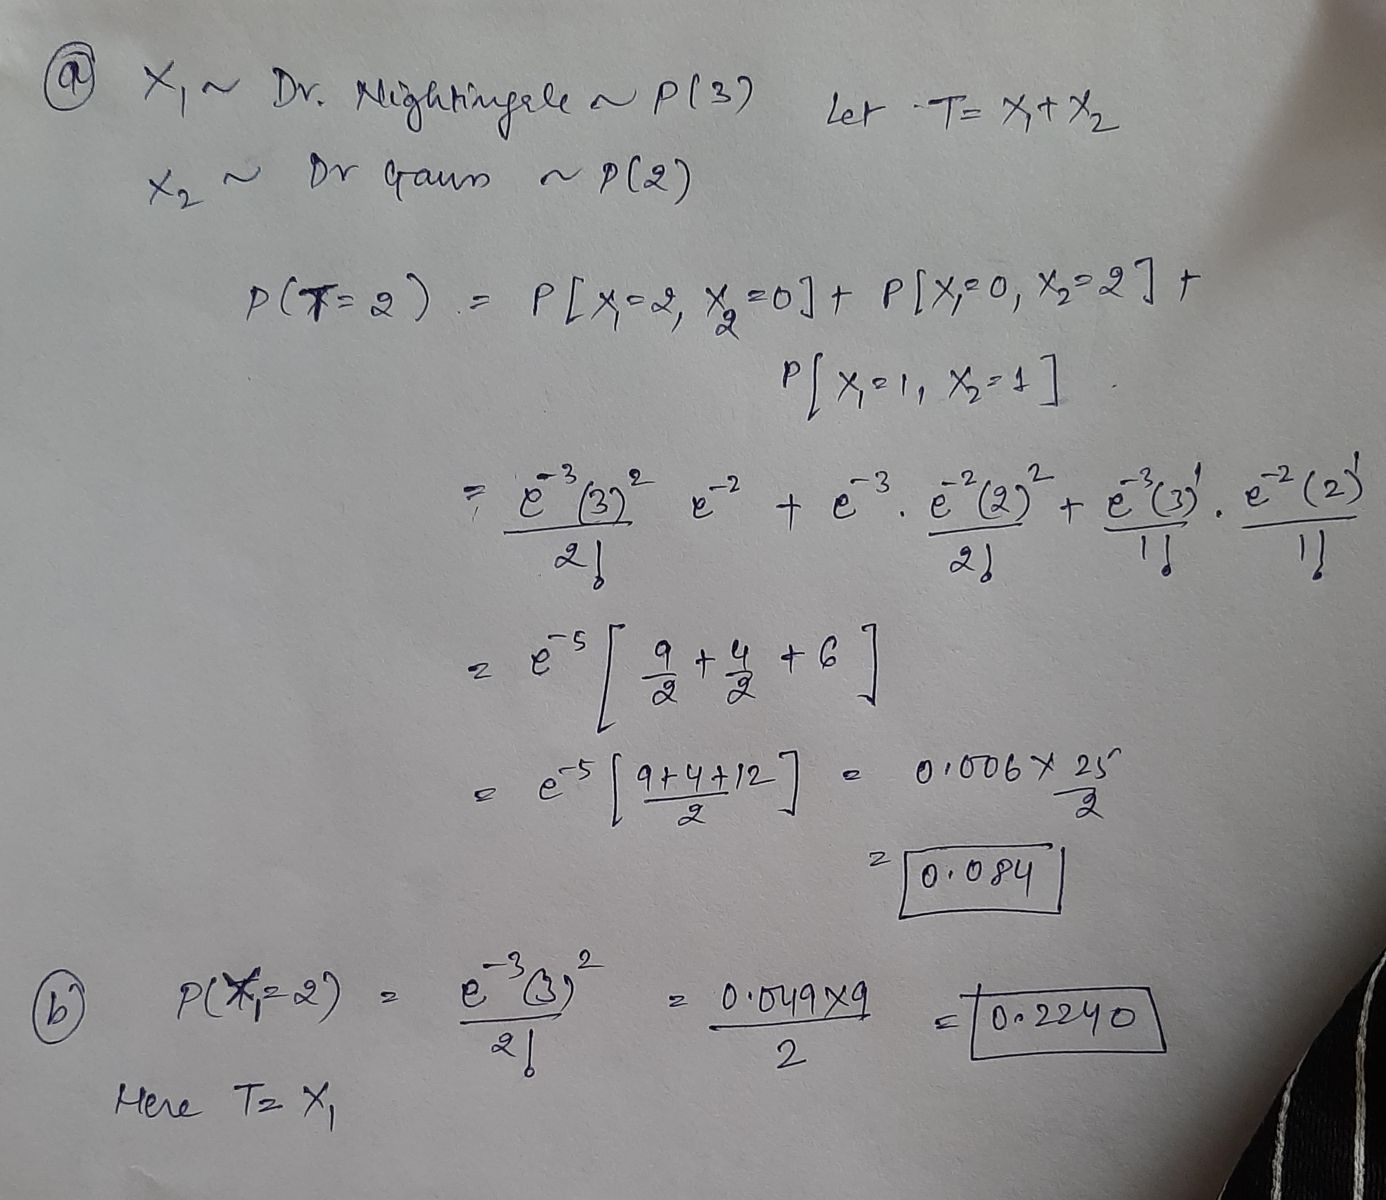 (a) X₁ ~ Dr. Nightingale ~ P(3) Let T = X₁ + X₂
X₂ ~ Dr Gauss ~ P(2)
P(T=2) = P[X₁=2, X₂=0] + P[X₁=0, X₂=2] +
P[X₁=1, X₂=1]
= e⁻³(3)²/2! e⁻² + e⁻³ . e⁻²(2)²/2! + e⁻³(3)¹/1! . e⁻²(2)¹/1!
= e⁻⁵ [9/2 + 4/2 + 6]
= e⁻⁵ [(9+4+12)/2] = 0.006 × 25/2
= 0.084
(b) P(X₁=2) = e⁻³(3)²/2! = 0.049×9/2 = 0.2240
Here T = X₁